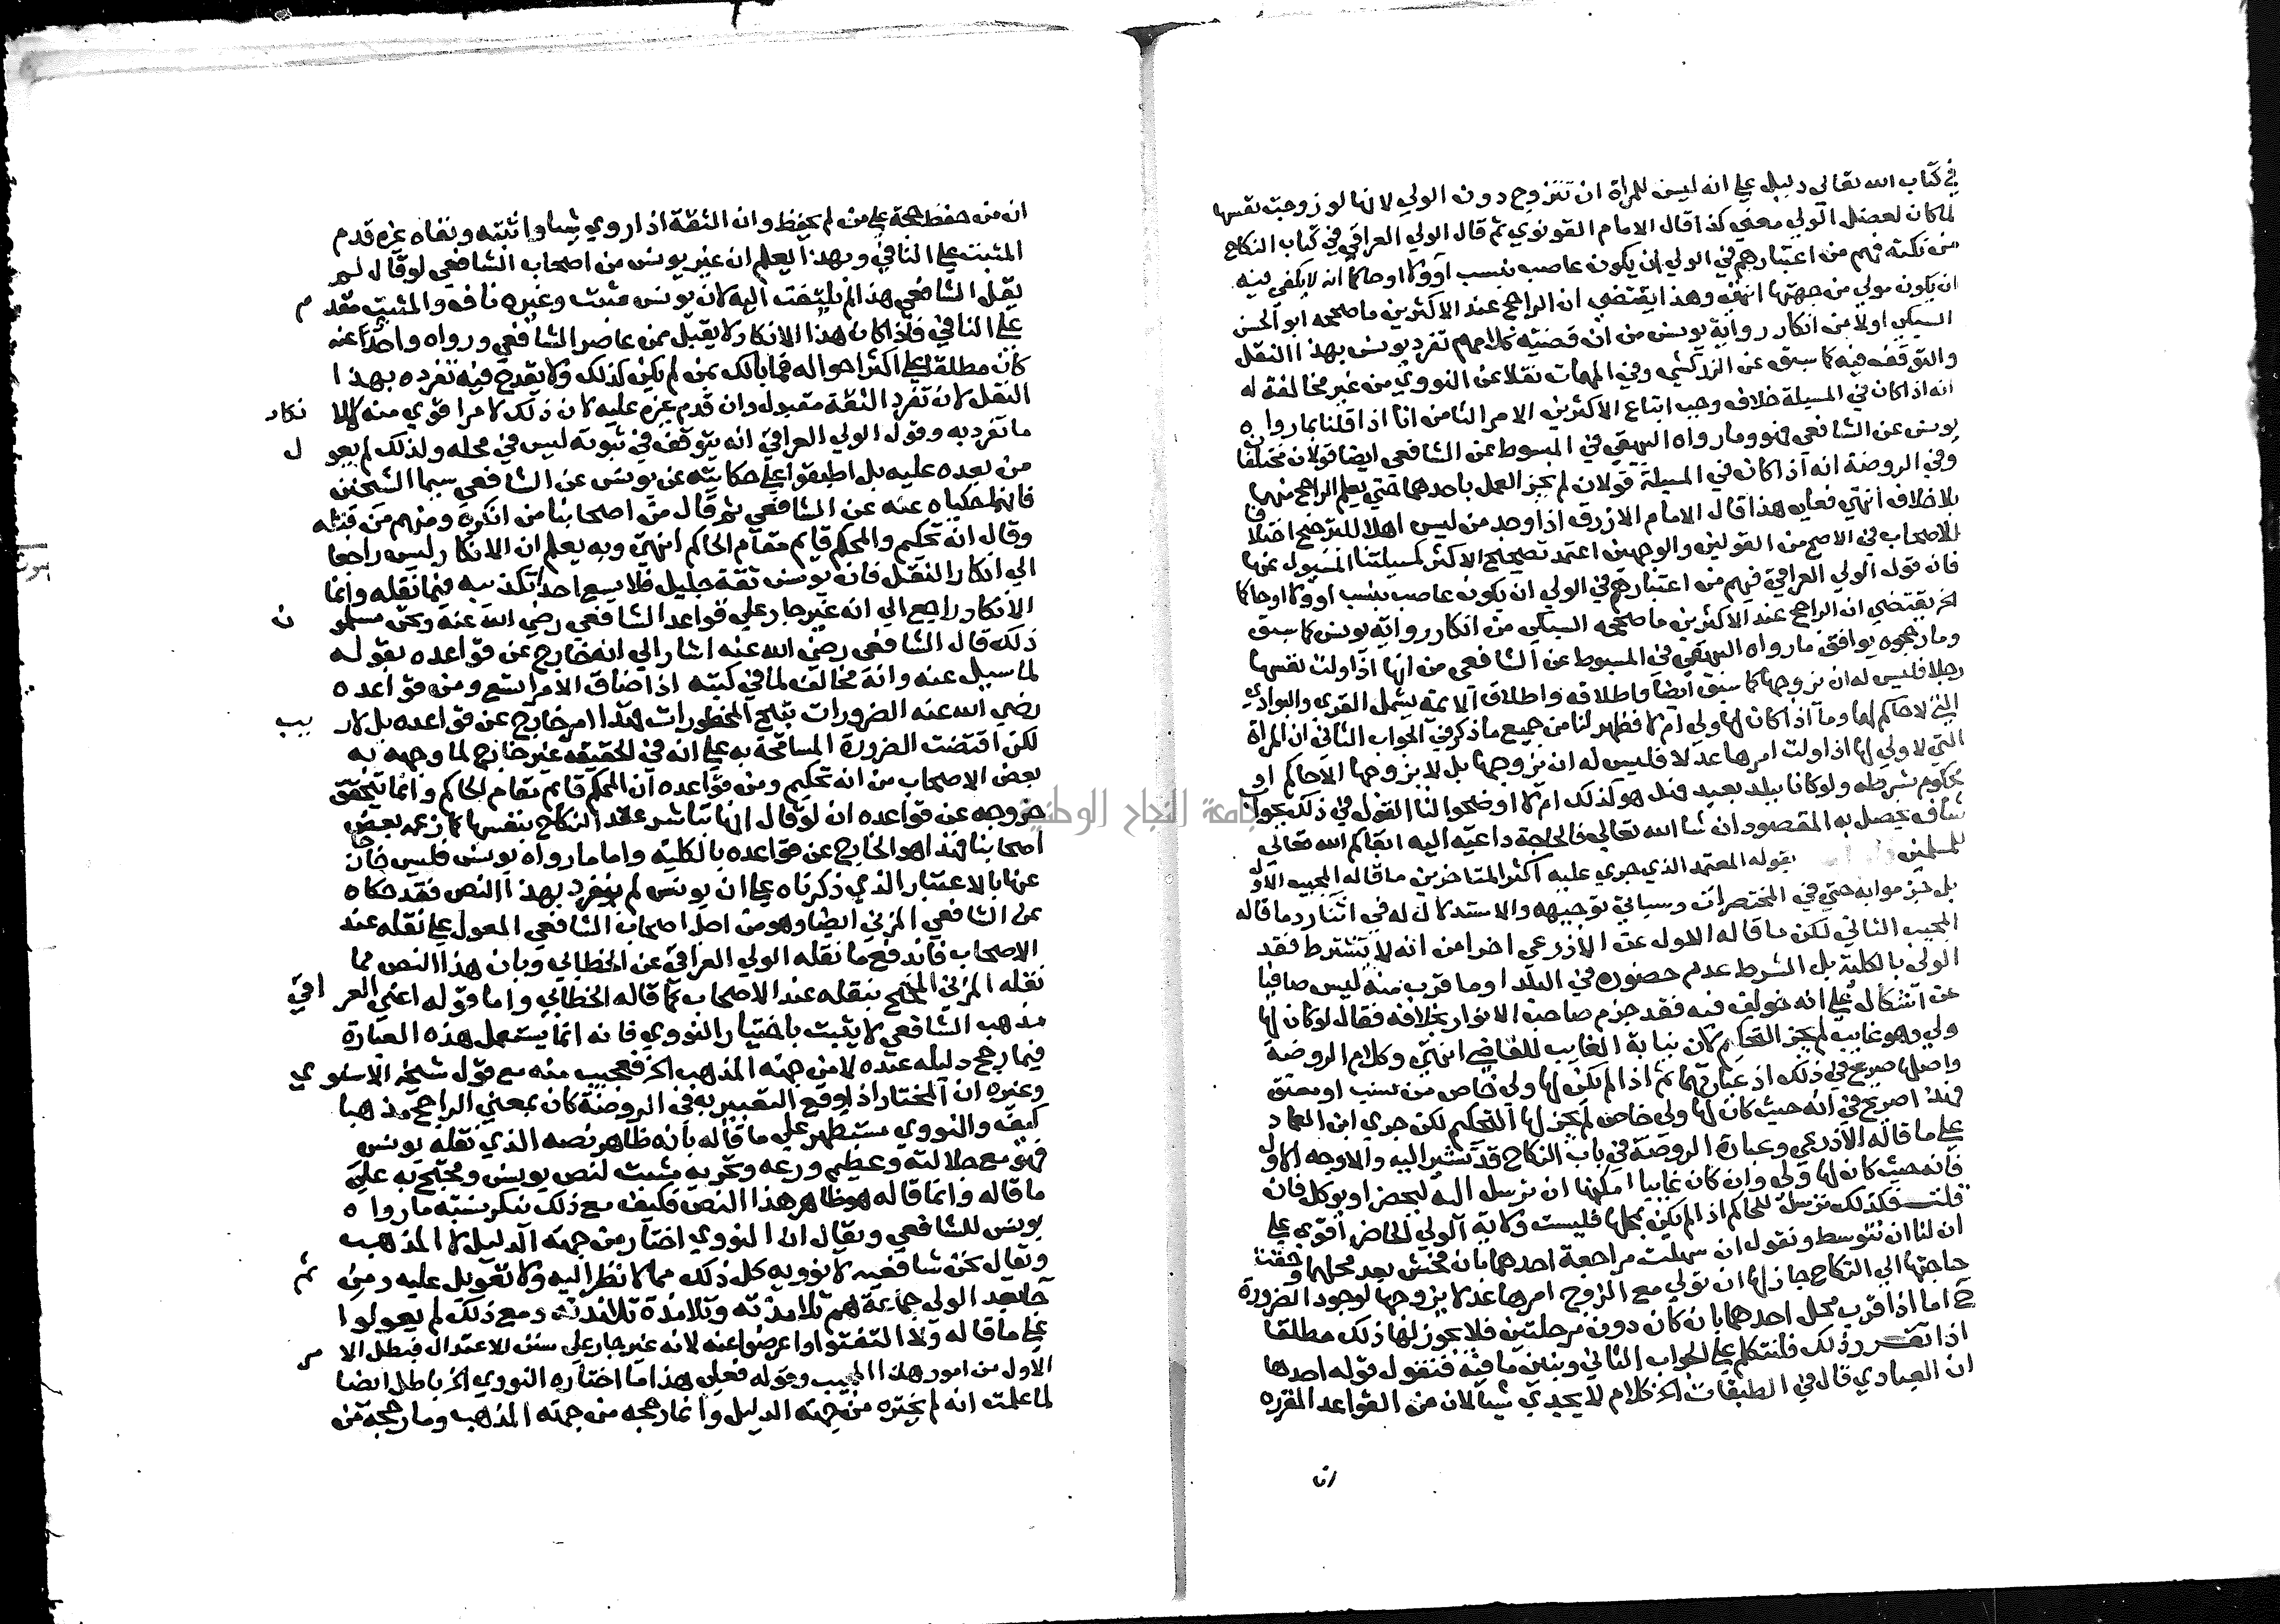 في كتاب الله تعالي دليل علي انه ليس للمراة ان تتزوج دون الولي لانها لو زوجت نفسها
لما كان لعضل الولي معني كذا قال الامام القونوي ثم قال الولي العراقي في كتاب النكاح
من نكته فهم من اعتبارهم في الولي ان يكون عاصب بنسب او ولا او حاكما انه لا يكفي فيه
ان يكون مولي من جهتها انتهي وهذا يقتضي ان الراجح عند الاكثرين ما صححه ابو الحسن
السبكي اولا من انكار رواية يونس من ان قضية كلامهم تفرد يونس بهذا النقل
والتوقف فيه كما سبق عن الزركشي وفي المهمات نقلا عن النووي من غير مخالفة له
انه اذا كان في المسيلة خلاف وجب اتباع الاكثرين الامر الثامن انا اذا قلنا بما رواه
يونس عن الشافعي فهو وما رواه البيهقي في المبسوط عن الشافعي ايضا قولان مختلفان
وفي الروضة انه اذا كان في المسيلة قولان لم يجز العمل باحدهما حتي يعلم الراجح منهما
بلا خلاف انتهي فعلي هذا قال الامام الازرق اذا وجد من ليس اهلا للترجيح اختلافا
للاصحاب في الاصح من القولين والوجهين اعتمد تصحيح الاكثر كمسيلتنا المسيول عنها
فان قول الولي العراقي فهم من اعتبارهم في الولي ان يكون عاصب بنسب او ولا او حاكما
الخ يقتضي ان الراجح عند الاكثرين ما صححه السبكي من انكار رواية يونس كما سبق
وما رجحوه يوافق ما رواه البيهقي في المبسوط عن الشافعي من انها اذا ولت نفسها
رجلا فليس له ان يزوجها كما سبق ايضا واطلاقه واطلاق الايمة يشمل القري والبوادي
التي لا حاكم لها وما اذا كان لها ولي ام لا فظهر لنا من جميع ما ذكر في الجواب الثاني ان المراة
التي لا ولي لها اذا ولت امرها عدلا فليس له ان يزوجها بل لا يزوجها الا حاكم او
محكوم بشرطه ولو كانا ببلد بعيد فهل هو كذلك ام لا اوضحوا لنا القول في ذلك بجواب
شاف يحصل به المقصود ان شا الله تعالي فالحاجة داعية اليه ابقاكم الله تعالي
للمسلمين بقوله المعتمد الذي جري عليه اكثر المتاخرين ما قاله المجيب الاول
بل جزموا به حتي في المختصرات وسياتي توجيهه والاستدلال له في اثنا رد ما قاله
المجيب الثاني لكن ما قاله الاول عن الاذرعي اخرا من انه لا يشترط فقد
الولي بالكلية بل الشرط عدم حضوره في البلد او ما قرب منه ليس صافيا
عن اشكال علي انه خولف فيه فقد جزم صاحب الانوار بخلافه فقال لو كان لها
ولي وهو غايب لم يجز التحكيم لان نيابة الغايب للقاضي انتهي وكلام الروضة
واصلها صريح في ذلك اذ عبارتهما ثم اذا لم يكن لها ولي خاص من نسب او معتق
فهذا صريح في انه حيث كان لها ولي خاص لم يجز لها التحكيم لكن جري ابن العماد
علي ما قاله الاذرعي وعبارة الروضة في باب النكاح قد تشير اليه والاوجه الاول
فانه حيث كان لها ولي وان كان غايبا امكنها ان ترسل اليه ليحضر او يوكل فان
قلت فكذلك ترسل للحاكم اذا لم يكن بمحلها فليست ولاية الولي الخاص اقوي علي
ان لنا ان نتوسط ونقول ان سهلت مراجعة احدهما بان فحش بعد محلهما وحقت
حاجتها الي النكاح جاز لها ان تولي مع الزوج امرها عدلا يزوجها لوجود الضرورة
ح اما اذا قرب محل احدهما بان كان دون مرحلتين فلا يجوز لها ذلك مطلقا
اذا تقرر ذلك فلنتكلم علي الجواب الثاني ونبين ما فيه فنقول قوله احدها
ان العبادي قال في الطبقات الخ كلام لا يجدي شيا لان من القواعد المقرره
ان
ان من حفظ حجة علي من لم يحفظ وان الثقة اذا روي شيا واثبته ونفاه غيره قدم
المثبت علي النافي وبهذا يعلم ان غير يونس من اصحاب الشافعي لو قال لم
يقل الشافعي هذا لم يلتفت اليه لان يونس مثبت وغيره نافه والمثبت مقدم
علي النافي فاذا كان هذا الانكار لا يقبل ممن عاصر الشافعي ورواه واخذ عنه
كان مطلقا علي اكثر احواله فما بالك بمن لم يكن كذلك ولا يقدح فيه تفرده بهذا
النقل لان تفرد الثقة مقبول وان قدم غيره عليه لان ذلك لامر اقوي منه لا لانكار
ما تفرد به وقول الولي العراقي انه يتوقف في ثبوته ليس في محله ولذلك لم يعول
من بعده عليه بل اطبقوا علي حكايته عن يونس عن الشافعي سيما الشيخين
فانهما حكياه عنه عن الشافعي ثم قال من اصحابنا من انكره ومنهم من قبله
وقال انه تحكيم والمحكم قايم مقام الحاكم انتهي وبه يعلم ان الانكار ليس راجعا
الي انكار النقل فان يونس ثقة جليل فلا يسع احد تكذيبه فيما نقله وانما
الانكار راجع الي انه غير جار علي قواعد الشافعي رضي الله عنه ونحن مسلمون
ذلك قال الشافعي رضي الله عنه اشار الي انه خارج عن قواعده بقوله
لما سيل عنه وانه مخالف لما في كتبه اذا ضاق الامر اتسع ومن قواعده
رضي الله عنه الضرورات تبيح المحظورات فهذا امر خارج عن قواعده بلا ريب
لكن اقتضت الضرورة المسامحة به علي انه في الحقيقة غير خارج لما وجهه به
بعض الاصحاب من انه تحكيم ومن قواعده ان المحكم قايم مقام الحاكم وانما يتحقق
خروجه عن قواعده ان لو قال انها تباشر عقد النكاح بنفسها كما زعمه بعض
اصحابنا فهذا هو الخارج عن قواعده بالكلية واما ما رواه يونس فليس خارجا
عنها بالاعتبار الذي ذكرناه علي ان يونس لم ينفرد بهذا النص فقد حكاه
عن الشافعي المزني ايضا وهو من اجل اصحاب الشافعي المعول علي نقله عند
الاصحاب فاندفع ما نقله الولي العراقي عن الخطابي وبان هذا النص مما
نقله المزني المحتج بنقله عند الاصحاب كما قاله الخطابي واما قوله اعني العراقي
مذهب الشافعي لا يثبت باختيار النووي فانه انما يستعمل هذه العبارة
فيما رجح دليله عنده لا من جهة المذهب الخ فعجيب منه مع قول شيخه الاسنوي
وغيره ان المختار اذا وقع التعبير به في الروضة كان بمعني الراجح مذهبا
كيف والنووي مستظهر علي ما قاله بانه ظاهر نصه الذي نقله يونس
فهو مع جلالته وعظيم ورعه وتحريه مثبت لنص يونس ومحتج به علي
ما قاله وانما قاله هو ظاهر هذا النص فكيف مع ذلك ننكر نسبة ما رواه
يونس للشافعي ويقال ان النووي اختار من جهة الدليل لا المذهب
ويقال نحن شافعية لا نوويه كل ذلك مما لا نظر اليه ولا تعويل عليه ومن ثم
جا بعد الولي جماعة هم تلامذته وتلامذة تلامذته ومع ذلك لم يعولوا
علي ما قاله ولا التفتوا واعرضوا عنه لانه غير جار علي سنن الاعتدال فبطل الامر
الاول من امور هذا المجيب وقوله فعلي هذا ما اختاره النووي الخ باطل ايضا
لما علمت انه لم يختره من جهة الدليل وانما رجحه من جهة المذهب وما رجحه من
جامعة النجاح الوطنية